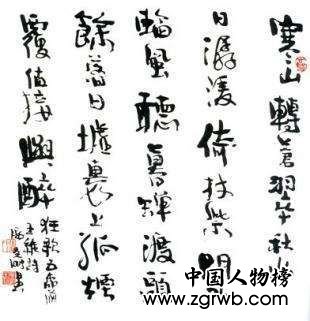 寒山轉蒼翠秋
日潺湲倚杖柴門
臨風聽暮蟬渡頭
餘落日墟裏上孤煙
覆值接輿醉
狂歌五柳前
王維詩
中国人物榜
www.zgrwb.com